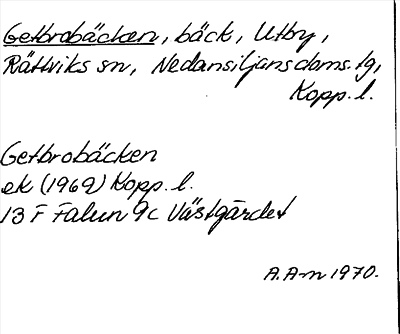 Getbrobäcken, bäck, Utby,
Rättviks sn, Nedansiljans doms. tg,
Kopp. l.
Getbrobäcken
ek (1969) Kopp. l.
13 F Falun 9c Västgärdet
A. A-m 1970.